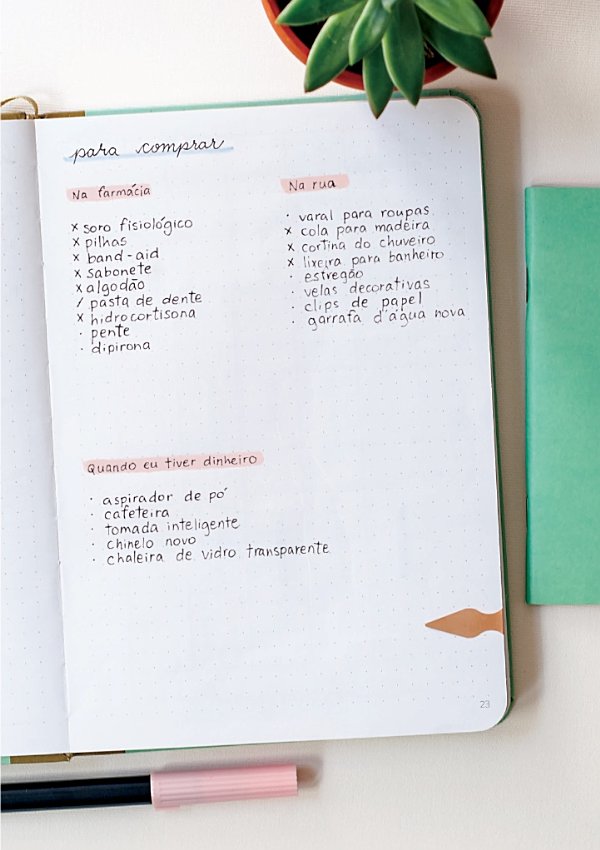 para comprar
Na farmácia
x soro fisiológico
x pilhas
x band-aid
x sabonete
x algodão
/ pasta de dente
x hidrocortisona
· pente
· dipirona
Na rua
· varal para roupas
x cola para madeira
x cortina do chuveiro
x lixeira para banheiro
· estregão
· velas decorativas
· clips de papel
· garrafa d'água nova
Quando eu tiver dinheiro
· aspirador de pó
· cafeteira
· tomada inteligente
· chinelo novo
· chaleira de vidro transparente
23